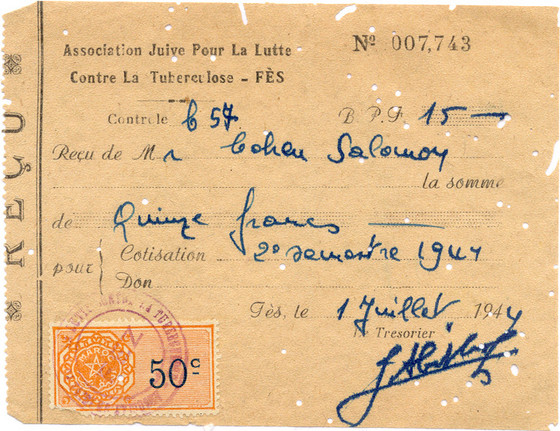 Association Juive Pour La Lutte
Contre La Tuberculose – FÈS
Nº 007,743
REÇU
Contrôle C 57 B. P. F. 15 —
Reçu de Mr Cohen Salomon
la somme
de Quinze francs —
pour { Cotisation 2º semestre 1944
Don
Fès, le 1 Juillet 1944
Le Tresorier
MAROC
50c